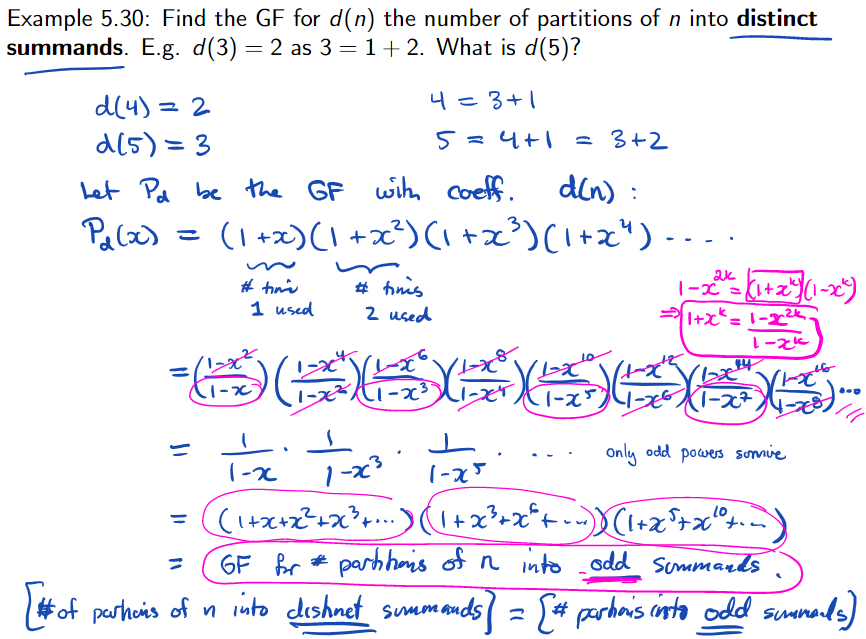 Example 5.30: Find the GF for d(n) the number of partitions of n into distinct
summands. E.g. d(3) = 2 as 3 = 1 + 2. What is d(5)?
d(4) = 2 4 = 3+1
d(5) = 3 5 = 4+1 = 3+2
Let P_d be the GF with coeff. d(n) :
P_d(x) = (1+x)(1+x²)(1+x³)(1+x⁴) ----.
# times # times
1 used 2 used
1-x^{2k} = (1+x^k)(1-x^k)
⇒ 1+x^k = \frac{1-x^{2k}}{1-x^k}
= (\frac{1-x²}{1-x})(\frac{1-x⁴}{1-x²})(\frac{1-x⁶}{1-x³})(\frac{1-x⁸}{1-x⁴})(\frac{1-x^{10}}{1-x⁵})(\frac{1-x^{12}}{1-x⁶})(\frac{1-x^{14}}{1-x⁷})(\frac{1-x^{16}}{1-x⁸})...
= \frac{1}{1-x} · \frac{1}{1-x³} · \frac{1}{1-x⁵} · ---. only odd powers survive
= (1+x+x²+x³+...)(1+x³+x⁶+...)(1+x⁵+x^{10}+...)
= GF for # partitions of n into odd summands.
[# of partitions of n into distinct summands] = [# partitions into odd summands]